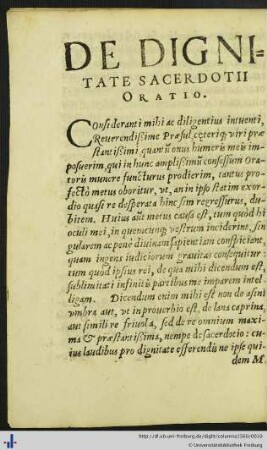 DE DIGNI=
TATE SACERDOTII
ORATIO.
Consideranti mihi ac diligentius intuenti,
Reuerendissime Præsul, cæteriq; viri præ
stantissimi, quantũ onus humeris meis im
posuerim, qui in hunc amplissimũ consessum Ora
toris munere functurus prodierim, tantus pro=
fectò metus oboritur, vt, an in ipso statim exor
dio quasi re desperata hinc sim regressurus, du=
bitem. Huius aũt metus causa est, tum quòd hi
oculi mei, in quemcunq; vestrum inciderint, sin
gularem ac penè diuinam sapientiam conspiciant,
quam ingens iudiciorum grauitas consequitur:
tum quòd ipsius rei, de qua mihi dicendum est,
sublimitati infinitis partibus me imparem intel
ligam. Dicendum enim mihi est non de asini
vmbra aut, vt in prouerbio est, de lana caprina,
aut simili re friuola, sed de re omnium maxi=
ma & præstantissima, nempe de sacerdotio: cu=
ius laudibus pro dignitate efferendis ne ipse qui=
dem M.
http://dl.ub.uni-freiburg.de/diglit/columna1580/0010
© Universitätsbibliothek Freiburg